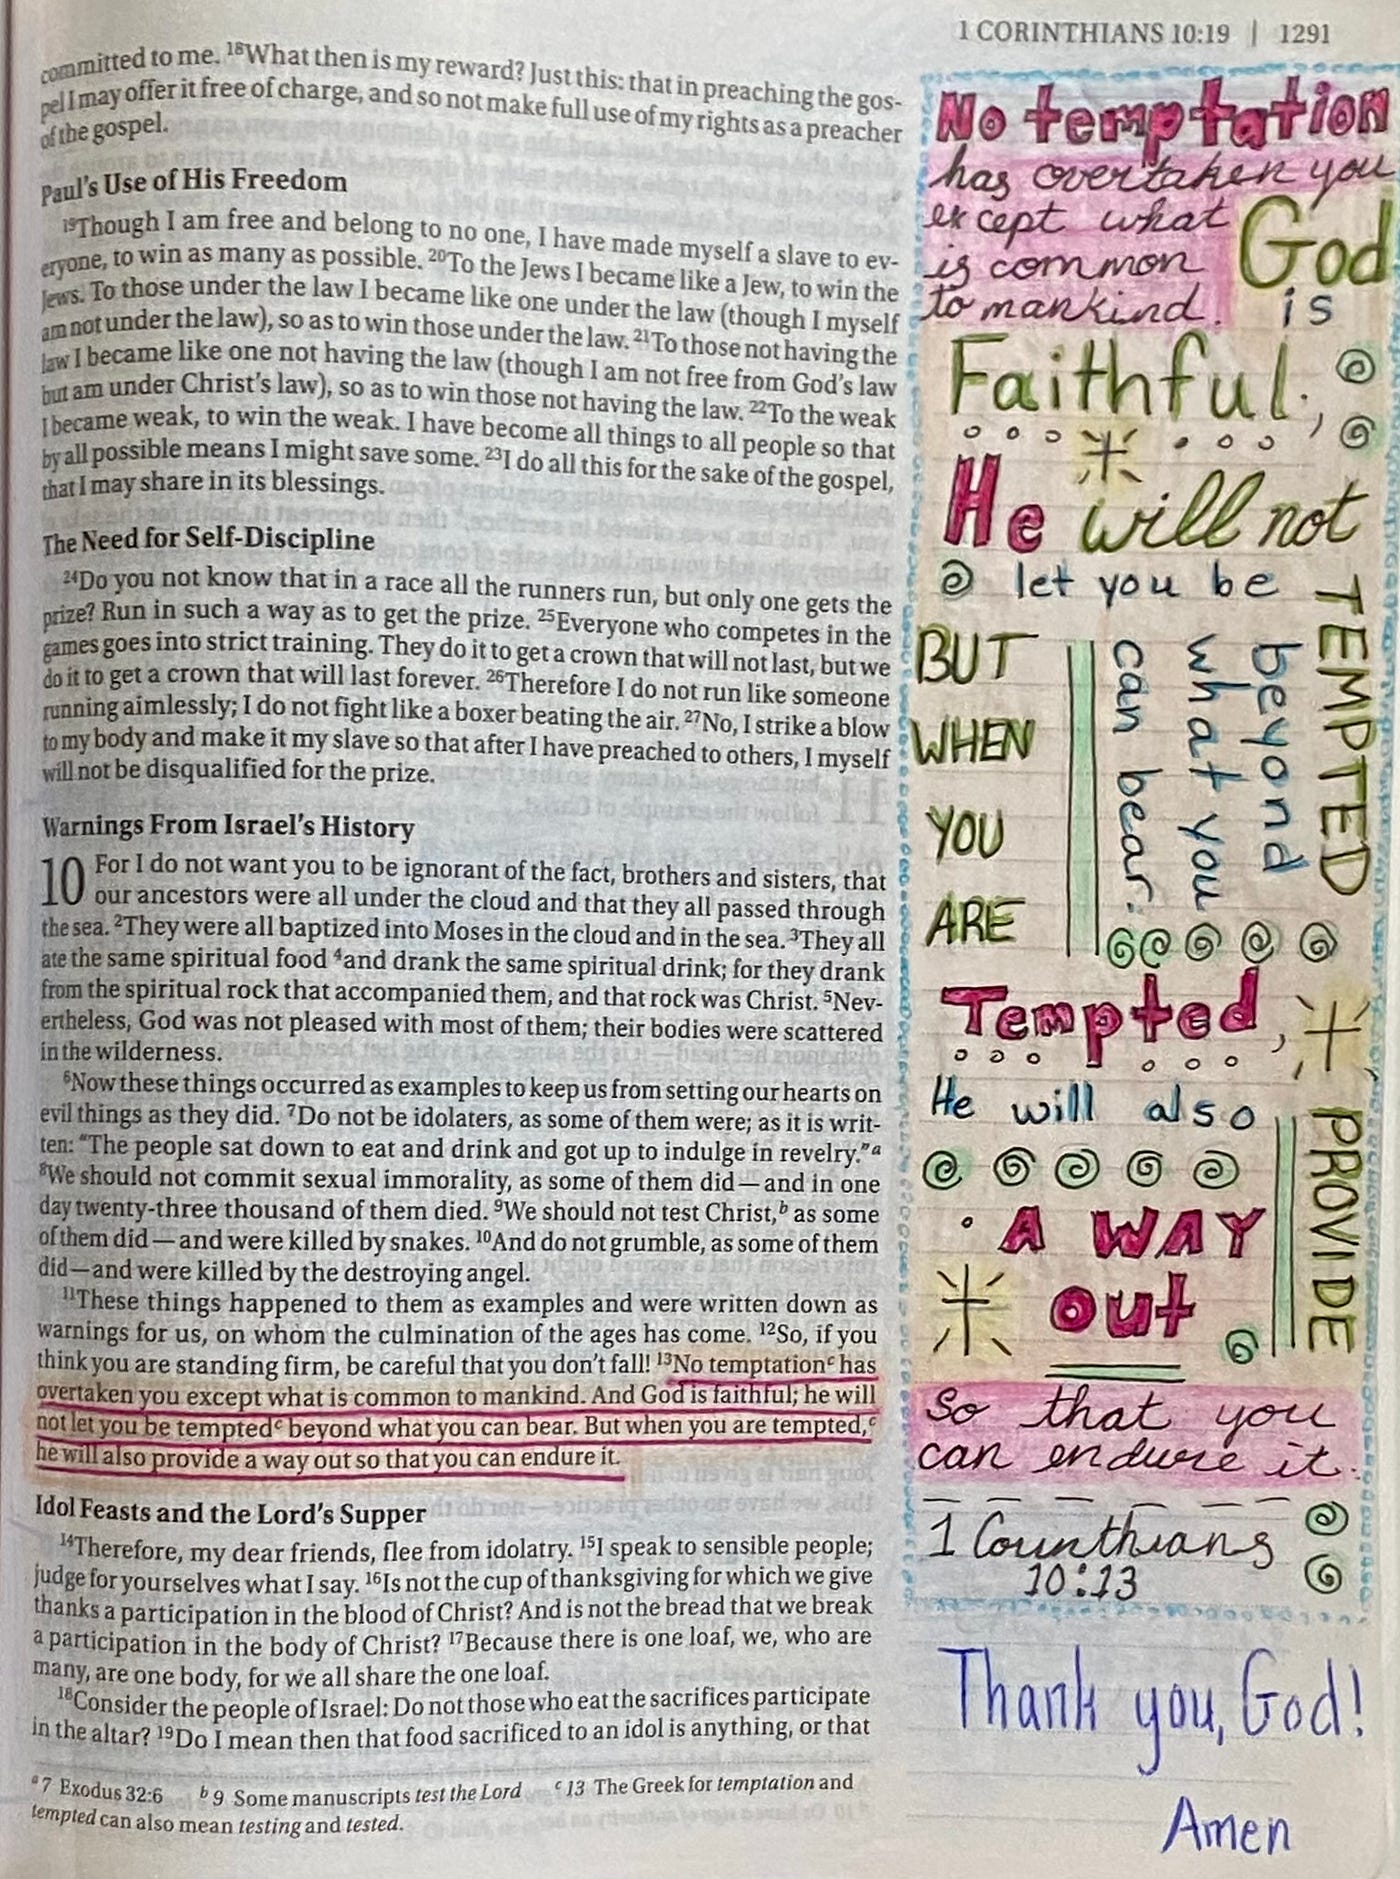 1 CORINTHIANS 10:19 | 1291
committed to me. ¹⁸What then is my reward? Just this: that in preaching the gos-
pel I may offer it free of charge, and so not make full use of my rights as a preacher
of the gospel.
Paul's Use of His Freedom
¹⁹Though I am free and belong to no one, I have made myself a slave to ev-
eryone, to win as many as possible. ²⁰To the Jews I became like a Jew, to win the
Jews. To those under the law I became like one under the law (though I myself
am not under the law), so as to win those under the law. ²¹To those not having the
law I became like one not having the law (though I am not free from God's law
but am under Christ's law), so as to win those not having the law. ²²To the weak
I became weak, to win the weak. I have become all things to all people so that
by all possible means I might save some. ²³I do all this for the sake of the gospel,
that I may share in its blessings.
The Need for Self-Discipline
²⁴Do you not know that in a race all the runners run, but only one gets the
prize? Run in such a way as to get the prize. ²⁵Everyone who competes in the
games goes into strict training. They do it to get a crown that will not last, but we
do it to get a crown that will last forever. ²⁶Therefore I do not run like someone
running aimlessly; I do not fight like a boxer beating the air. ²⁷No, I strike a blow
to my body and make it my slave so that after I have preached to others, I myself
will not be disqualified for the prize.
Warnings From Israel's History
10 For I do not want you to be ignorant of the fact, brothers and sisters, that
our ancestors were all under the cloud and that they all passed through
the sea. ²They were all baptized into Moses in the cloud and in the sea. ³They all
ate the same spiritual food ⁴and drank the same spiritual drink; for they drank
from the spiritual rock that accompanied them, and that rock was Christ. ⁵Nev-
ertheless, God was not pleased with most of them; their bodies were scattered
in the wilderness.
⁶Now these things occurred as examples to keep us from setting our hearts on
evil things as they did. ⁷Do not be idolaters, as some of them were; as it is writ-
ten: "The people sat down to eat and drink and got up to indulge in revelry."ᵃ
⁸We should not commit sexual immorality, as some of them did—and in one
day twenty-three thousand of them died. ⁹We should not test Christ,ᵇ as some
of them did—and were killed by snakes. ¹⁰And do not grumble, as some of them
did—and were killed by the destroying angel.
¹¹These things happened to them as examples and were written down as
warnings for us, on whom the culmination of the ages has come. ¹²So, if you
think you are standing firm, be careful that you don't fall! ¹³No temptationᶜ has
overtaken you except what is common to mankind. And God is faithful; he will
not let you be temptedᶜ beyond what you can bear. But when you are tempted,ᶜ
he will also provide a way out so that you can endure it.
Idol Feasts and the Lord's Supper
¹⁴Therefore, my dear friends, flee from idolatry. ¹⁵I speak to sensible people;
judge for yourselves what I say. ¹⁶Is not the cup of thanksgiving for which we give
thanks a participation in the blood of Christ? And is not the bread that we break
a participation in the body of Christ? ¹⁷Because there is one loaf, we, who are
many, are one body, for we all share the one loaf.
¹⁸Consider the people of Israel: Do not those who eat the sacrifices participate
in the altar? ¹⁹Do I mean then that food sacrificed to an idol is anything, or that
ᵃ7 Exodus 32:6 ᵇ9 Some manuscripts test the Lord ᶜ13 The Greek for temptation and
tempted can also mean testing and tested.
No temptation
has overtaken you
except what
is common
to mankind.
God
is
Faithful;
He will not
let you be
TEMPTED
beyond
what you
can bear.
BUT
WHEN
YOU
ARE
Tempted,
He will also
PROVIDE
A WAY
out
So that you
can endure it.
1 Corinthians
10:13
Thank you, God!
Amen